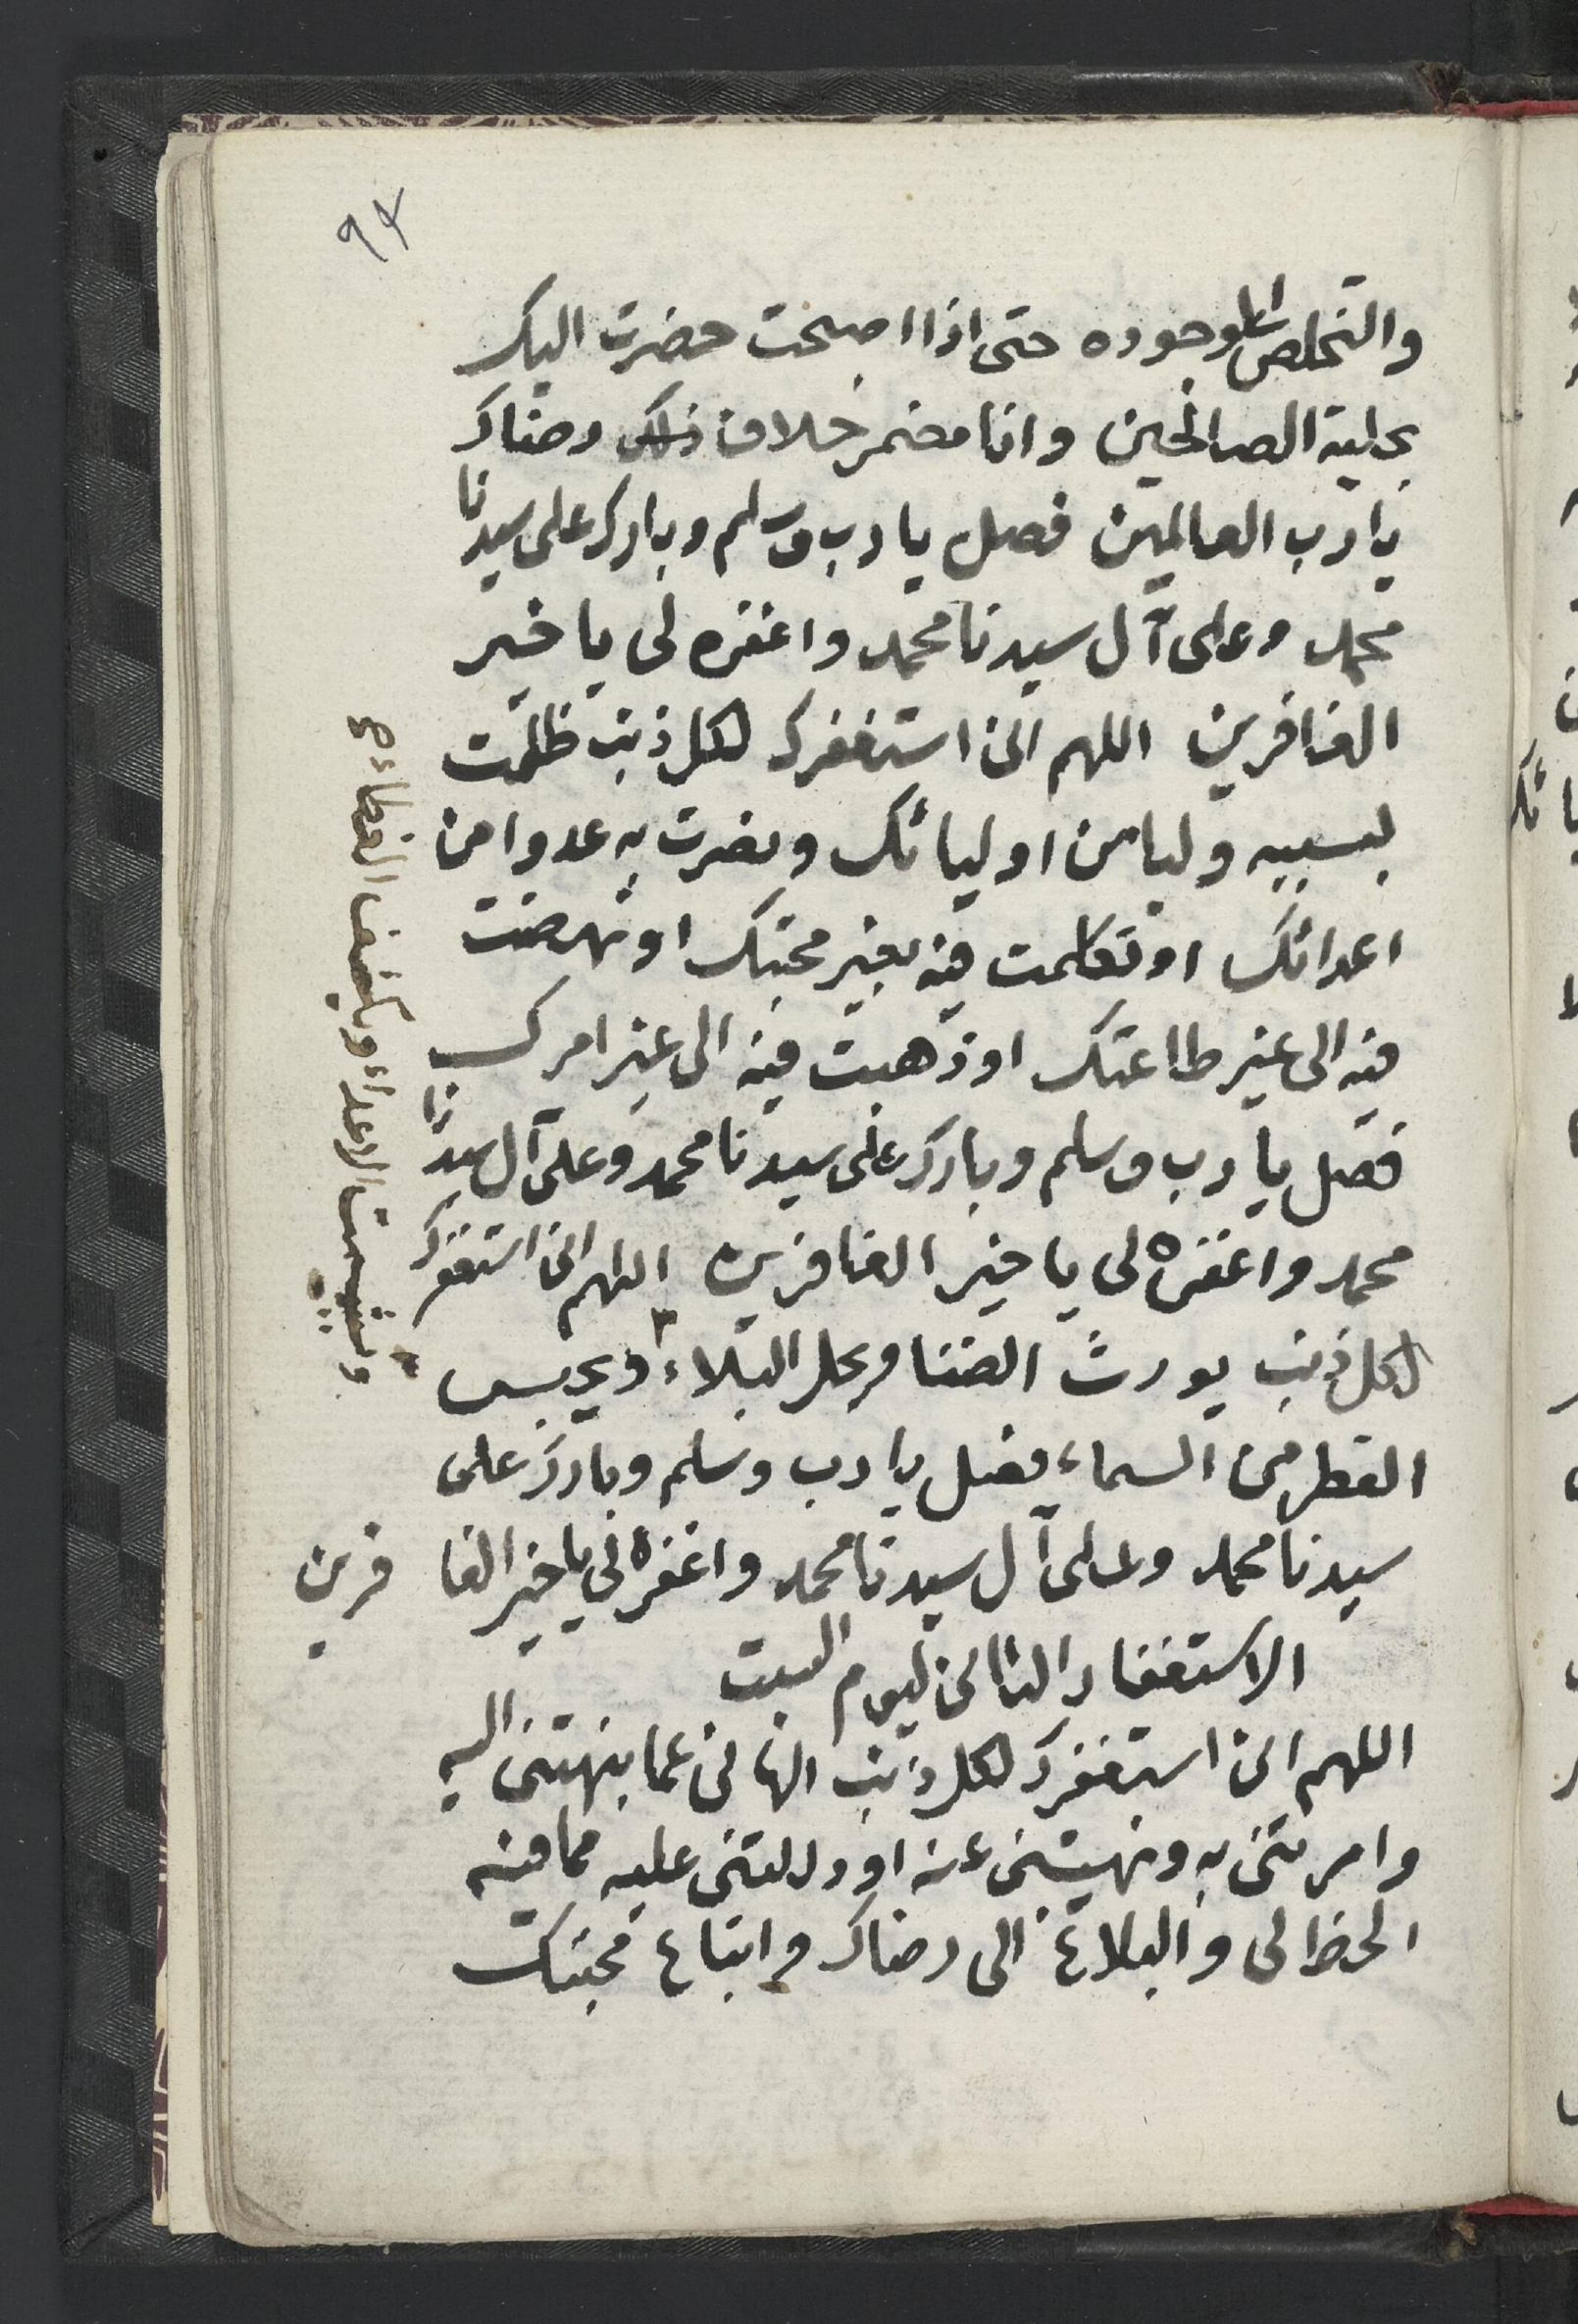 ٩٤
والتخلص الى وجوده حتى اذا اصبحت حضرت اليك
بحلية الصالحين وانا مضمر خلاف ذلك رضاك
يا رب العالمين فصل يا رب وسلم وبارك على سيدنا
محمد وعلى آل سيدنا محمد واغفره لى يا خير
الغافرين اللهم انى استغفرك لكل ذنب ظلمت
بسببه وليا من اوليائك ونصرت به عدوا من
اعدائك او تكلمت فيه بغير محبتك او نهضت
فيه الى غير طاعتك او ذهبت فيه الى غير امرك
فصل يا رب وسلم وبارك على سيدنا محمد وعلى آل سيدنا
محمد واغفره لى يا خير الغافرين اللهم انى استغفرك
لكل ذنب يورث الضنا ويحل البلاء ويحبس
القطر من السماء فصل يا رب وسلم وبارك على
سيدنا محمد وعلى آل سيدنا محمد واغفره لي يا خير الغا فرين
الاستغفار الثانى ليوم السبت
اللهم انى استغفرك لكل ذنب الهانى عما نهيتنى اليه
وامرتنى به ونهيتنى عنه او دللتنى عليه مما فيه
الحظ لى والبلاغ الى رضاك واتباع محبتك
ويشمت الاعداء ويكشف الغطاء صح